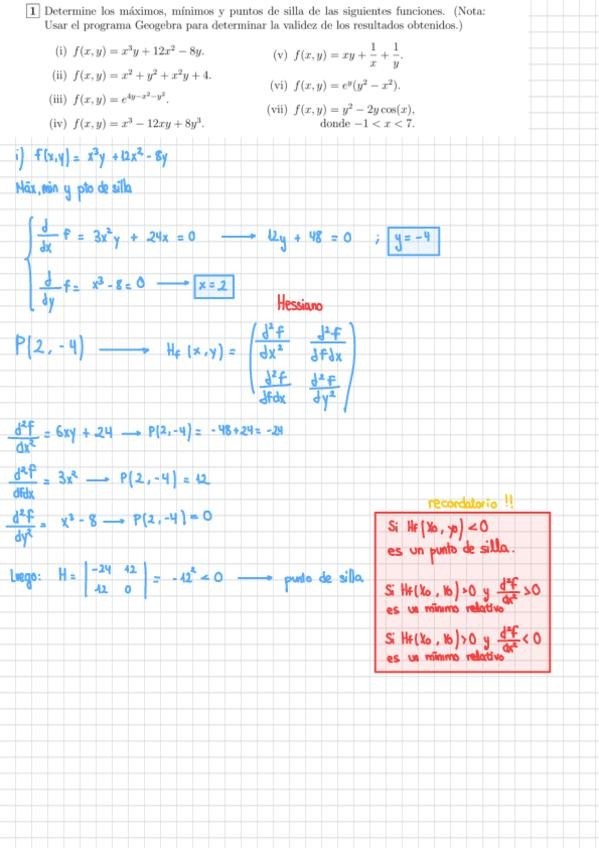 1 Determine los máximos, mínimos y puntos de silla de las siguientes funciones. (Nota:
Usar el programa Geogebra para determinar la validez de los resultados obtenidos.)
(i) f(x, y) = x³y + 12x² − 8y.
(ii) f(x, y) = x² + y² + x²y + 4.
(iii) f(x, y) = e^{4y−x²−y²}.
(iv) f(x, y) = x³ − 12xy + 8y³.
(v) f(x, y) = xy + 1/x + 1/y.
(vi) f(x, y) = e^y(y² − x²).
(vii) f(x, y) = y² − 2y cos(x),
donde −1 < x < 7.
i) f(x,y) = x³y + 12x² - 8y
Máx, min y pto de silla
d/dx f = 3x²y + 24x = 0 ⟶ 12y + 48 = 0 ; y = -4
d/dy f = x³ - 8 = 0 ⟶ x = 2
Hessiano
P(2, -4) ⟶ Hf (x,y) = ( d²f/dx² d²f/dfdx
d²f/dfdx d²f/dy² )
d²f/dx² = 6xy + 24 ⟶ P(2,-4) = -48+24 = -24
d²f/dfdx = 3x² ⟶ P(2,-4) = 12
d²f/dy² = x³ - 8 ⟶ P(2,-4) = 0
Luego: H = | -24 12
12 0 | = -12² < 0 ⟶ punto de silla
recordatorio !!
Si Hf(x₀, y₀) < 0
es un punto de silla.
Si Hf(x₀, y₀) > 0 y d²f/dx² > 0
es un mínimo relativo
Si Hf(x₀, y₀) > 0 y d²f/dx² < 0
es un mínimo relativo